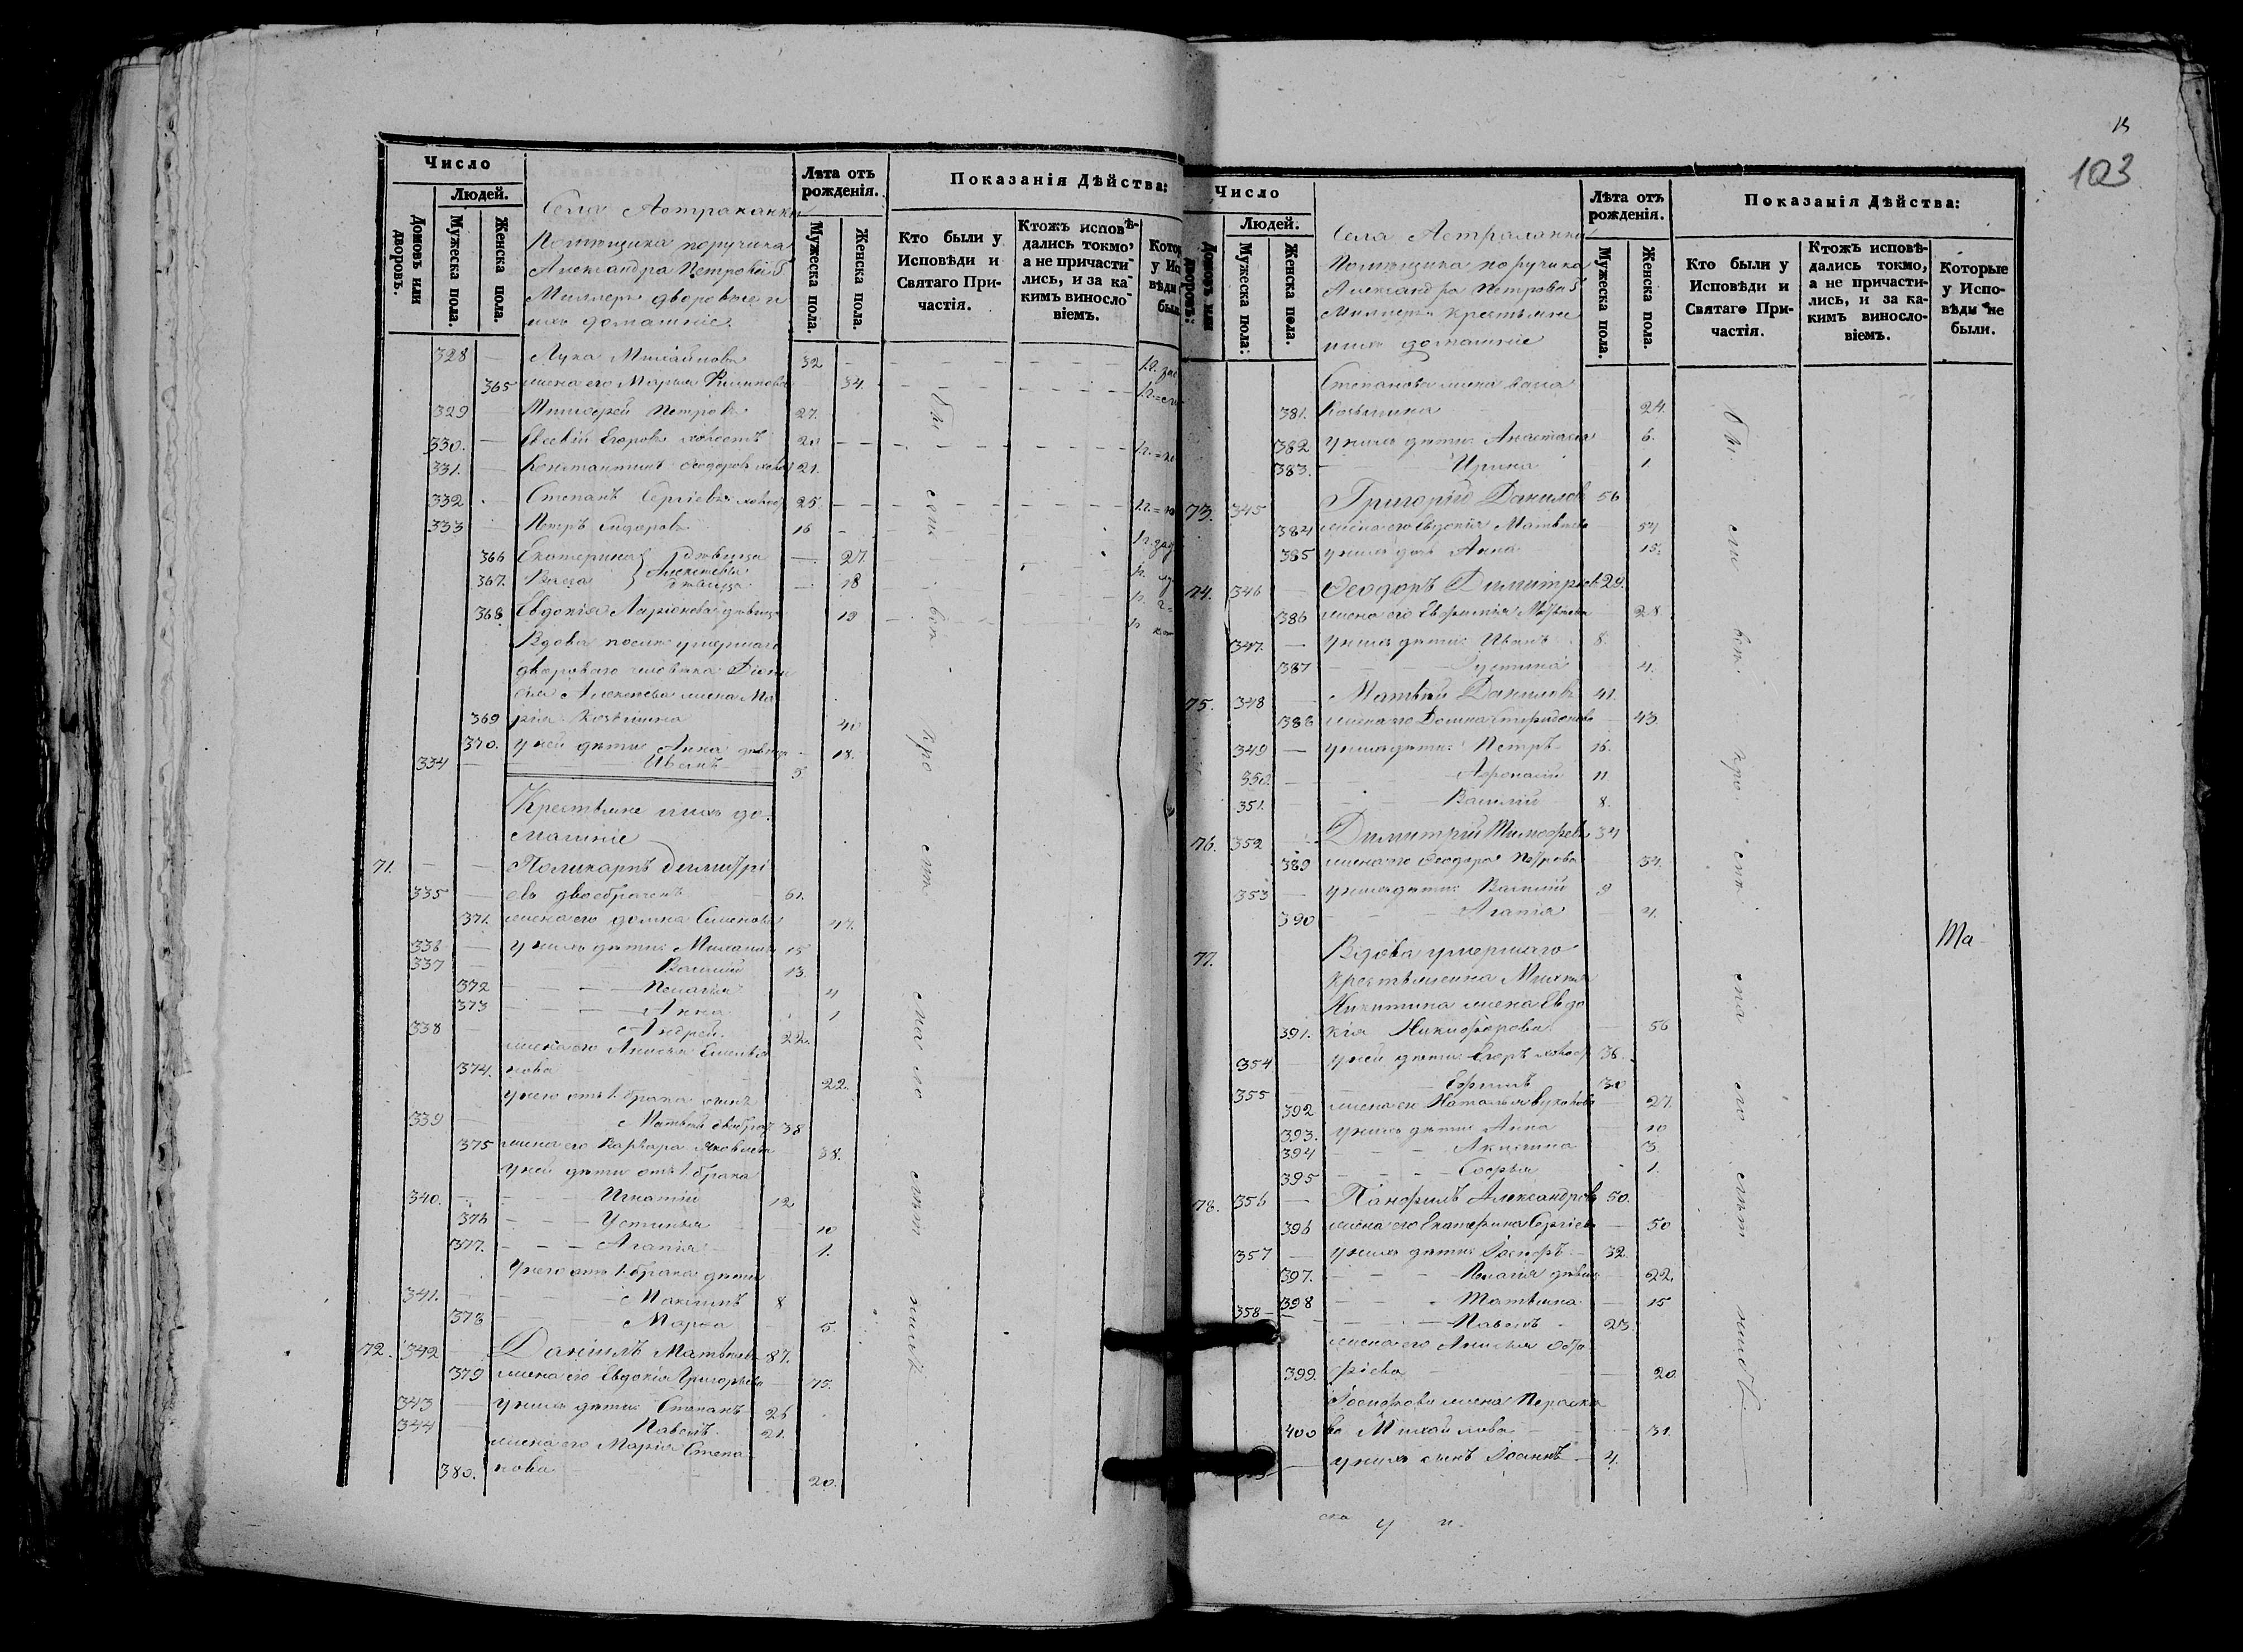 Число
Людей.
Домовъ или дворовъ.
Мужеска пола.
Женска пола.
Села Астраханки
Помѣщика поручика
Александра Петровича
Миллеръ дворовые и
ихъ домашніе.
Лѣта отъ рожденія.
Мужеска пола.
Женска пола.
Показанія Дѣйства:
Кто были у Исповѣди и Святаго Причастія.
Ктожъ исповѣдались токмо, а не причастились, и за какимъ винословіемъ.
328 Лука 32
365 жена его Марья 34.
329 Петровъ 27.
330. Егоровъ холостъ 20
331. Константинъ Ѳеодоровъ 21.
332 Степанъ Сергіевъ 25
333 Петръ Сидоровъ 16
366 Екатерина 27.
367. Алексѣевы 18
368. Евдокія Ларіонова дѣвица 19
Вдова послѣ умершаго
двороваго человѣка
Алексѣева жена Ма
369 рія Козьмина 40
370. у ней дѣти: Анна дѣвица 18.
334 Иванъ 5
Крестьяне ихъ до
машніе
71. Поликарпъ Димитрі
335 евъ двоебраченъ 61.
371. жена его Домна Семенова 47.
336 у нихъ дѣти: Михаилъ 15
337 Василій 13.
372 Пелагія 4
373 Анна 1
338 Андрей. 22.
жена его Анисья Емелья
374. нова 22.
у него отъ 1. брака сынъ
339 Матвѣй двоебрач 38
375 жена его Варвара Яковлева 38.
у ней дѣти отъ 1. брака
340. Игнатій 12
376 Устинья 10
377. Агапія 1.
У него отъ 1. брака дѣти
341. Максимъ 8
378 Марѳа 5.
72. 342 Даніилъ Матвѣевъ 87.
379 жена его Евдокія Григорьева 75.
343 у нихъ дѣти: Степанъ 26
344 Павелъ 21.
жена его Марія Степа
380. нова 20.
103
Число
Людей.
Домовъ или дворовъ:
Мужеска пола:
Женска пола.
Села Астраханки
Помѣщика поручика
Александра Петровича
Миллеръ крестьяне
ихъ домашніе
Лѣта отъ рожденія.
Мужеска пола.
Женска пола.
Показанія Дѣйства:
Кто были у Исповѣди и Святаго Причастія.
Ктожъ исповѣдались токмо, а не причастились, и за какимъ винословіемъ.
Которые у Исповѣди не были.
Степанова жена
381. Козьмина 24.
382 у нихъ дѣти: Анастасія 6.
383. Ирина 1
73. 345 Григорій Даниловъ 56
384 жена его Евдокія Матвѣева 54
385 у нихъ дочь Анна 15.
74. 346 Ѳеодоръ Димитріевъ 29.
386 жена его Евфимія Матвѣева 28
347. у нихъ дѣти: Иванъ 8.
387 4.
75. 348 Матвѣй Даниловъ 41.
388 жена его Домна Спиридонова 43.
349 у нихъ дѣти: Петръ 16.
350. Аѳонасій 11
351. Василій 8.
76. 352 Димитрій Тимоѳеевъ 34
389 жена его Ѳеодора Петрова 34.
353 у нихъ дѣти: Василій 9
390 Агапія 4.
77. Вдова умершаго
крестьянина
Никитина жена Евдо
391. кія Никифорова 56
354 у ней дѣти: Егоръ 36.
355 Ефимъ 30
392 жена его Наталья 27.
393. у нихъ дѣти: Анна 10
394 Акилина 3
395 Софья 1.
Ма
78. 356 Панфилъ Александровъ 50.
396 жена его Екатерина Сергіева 50
357 у нихъ дѣти: Іосифъ 32.
397. Пелагія дѣвица 22.
398 Татьяна 15
358 Павелъ 23.
жена его Анисья
399. 20.
Іосифова жена Параске
400 ва Михайлова 31.
у нихъ сынъ Іоаннъ 4.